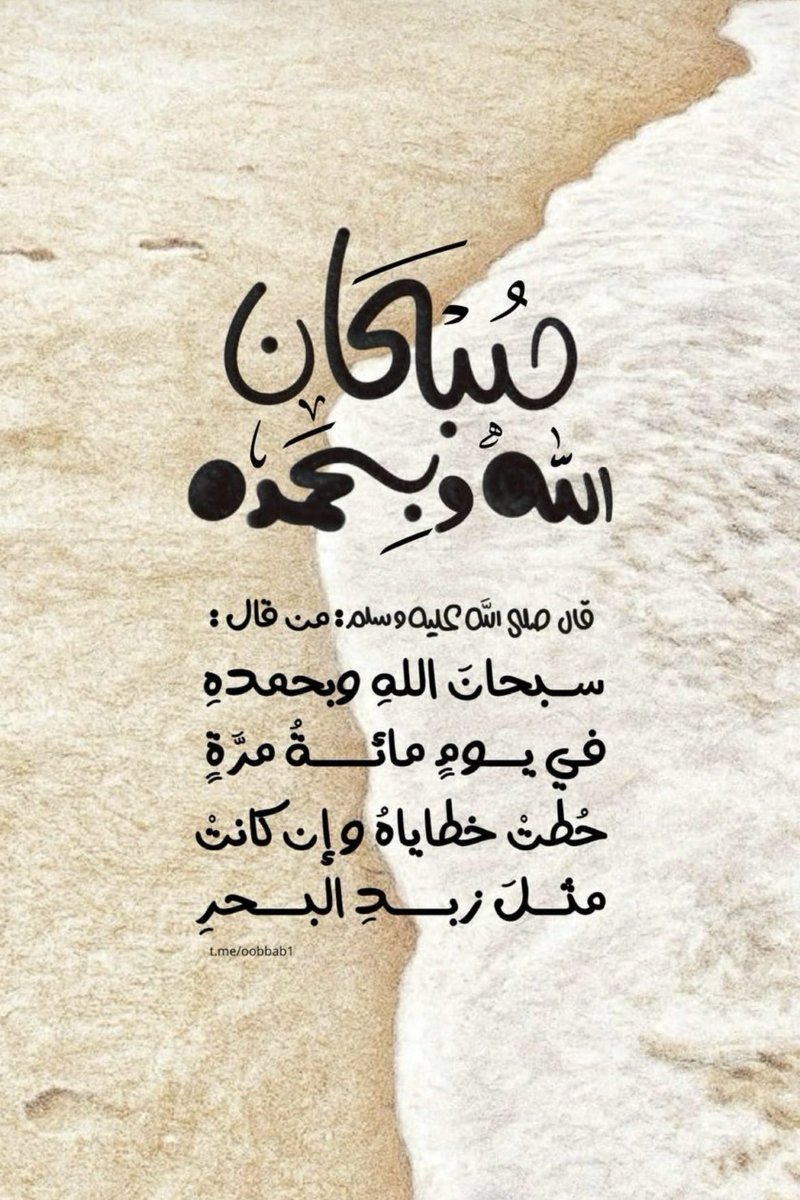 سبحان
الله وبحمده
قال صلى اللَّه عليه وسلم: من قال :
سبحانَ اللهِ وبحمدهِ
في يومٍ مائةُ مرَّةٍ
حُطتْ خطاياهُ وإن كانتْ
مثلَ زبدِ البحرِ
t.me/oobbab1